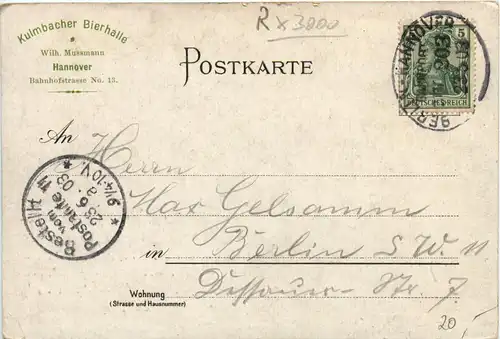 R x 3000
Kulmbacher Bierhalle
Wilh. Mussmann
Hannover
Bahnhofstrasse No. 15.
POSTKARTE
5
DEUTSCHES REICH
An
Herrn
Max Gelsamm
in Berlin S.W. 11
Dessauer-Str. 7.
Wohnung
(Strasse und Hausnummer)
Bestellt
vom
Postamte 11
23.6.03
a
9¼-10V.
20,